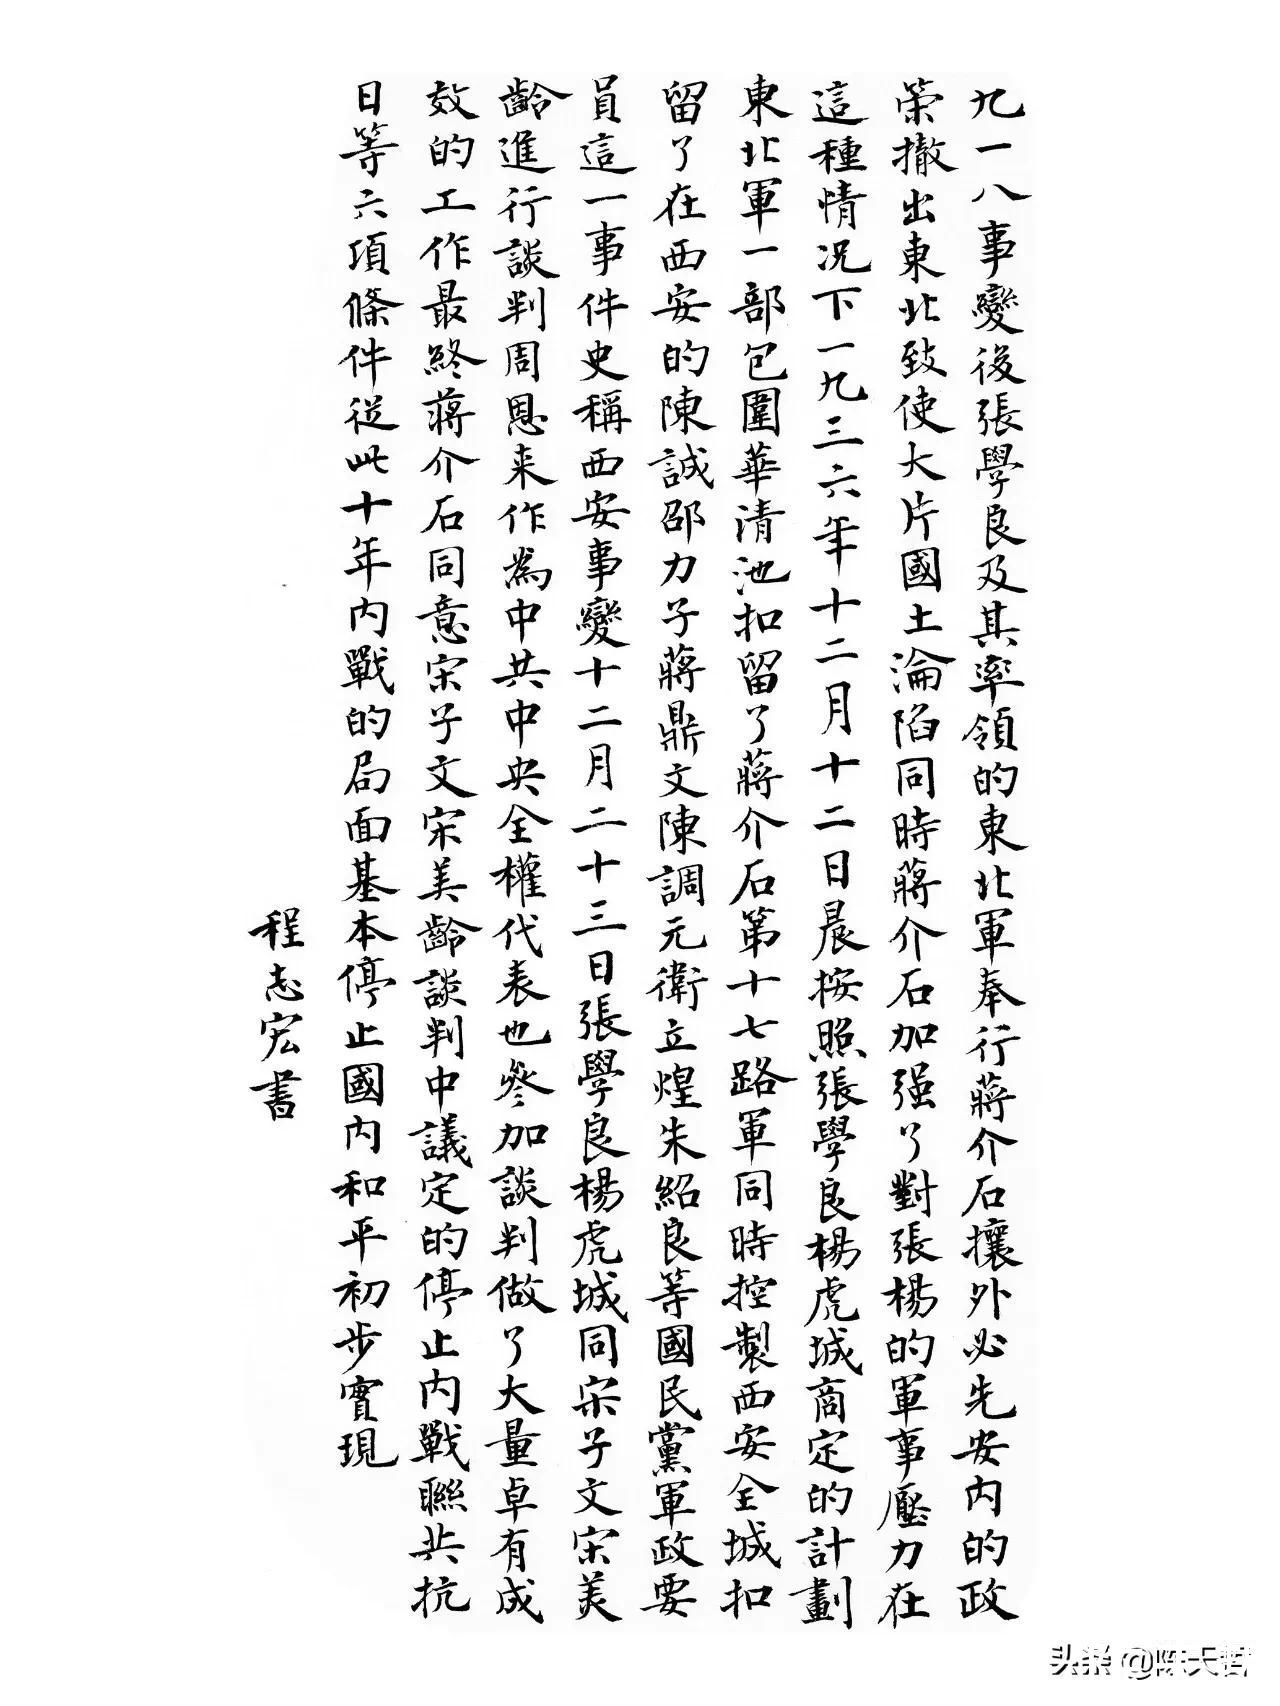 九一八事變後張學良及其率領的東北軍奉行蔣介石攘外必先安内的政
策撤出東北致使大片國土淪陷同時蔣介石加强了對張楊的軍事壓力在
這種情况下一九三六年十二月十二日晨按照張學良楊虎城商定的計劃
東北軍一部包圍華清池扣留了蔣介石第十七路軍同時控製西安全城扣
留了在西安的陳誠邵力子蔣鼎文陳調元衛立煌朱紹良等國民黨軍政要
員這一事件史稱西安事變十二月二十三日張學良楊虎城同宋子文宋美
齡進行談判周恩来作為中共中央全權代表也參加談判做了大量卓有成
效的工作最終蔣介石同意宋子文宋美齡談判中議定的停止内戰聯共抗
日等六項條件從此十年内戰的局面基本停止國内和平初步實現
程志宏書
头条 @陈天哲